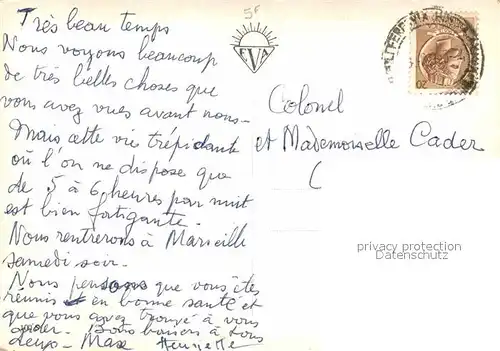 5F
Très beau temps
Nous voyons beaucoup
de très belles choses que
vous avez vues avant nous-
Mais cette vie trépidante
où l'on ne dispose que
de 5 à 6 heures par nuit
est bien fatigante.
Nous rentrerons à Marseille
samedi soir-
Nous pensons que vous êtes
réunis et en bonne santé et
que vous avez trouvé à vous
Bons baisers à tous
deux- Max Henriette
EVA
Colonel
et Mademoiselle Cader
privacy protection
Datenschutz